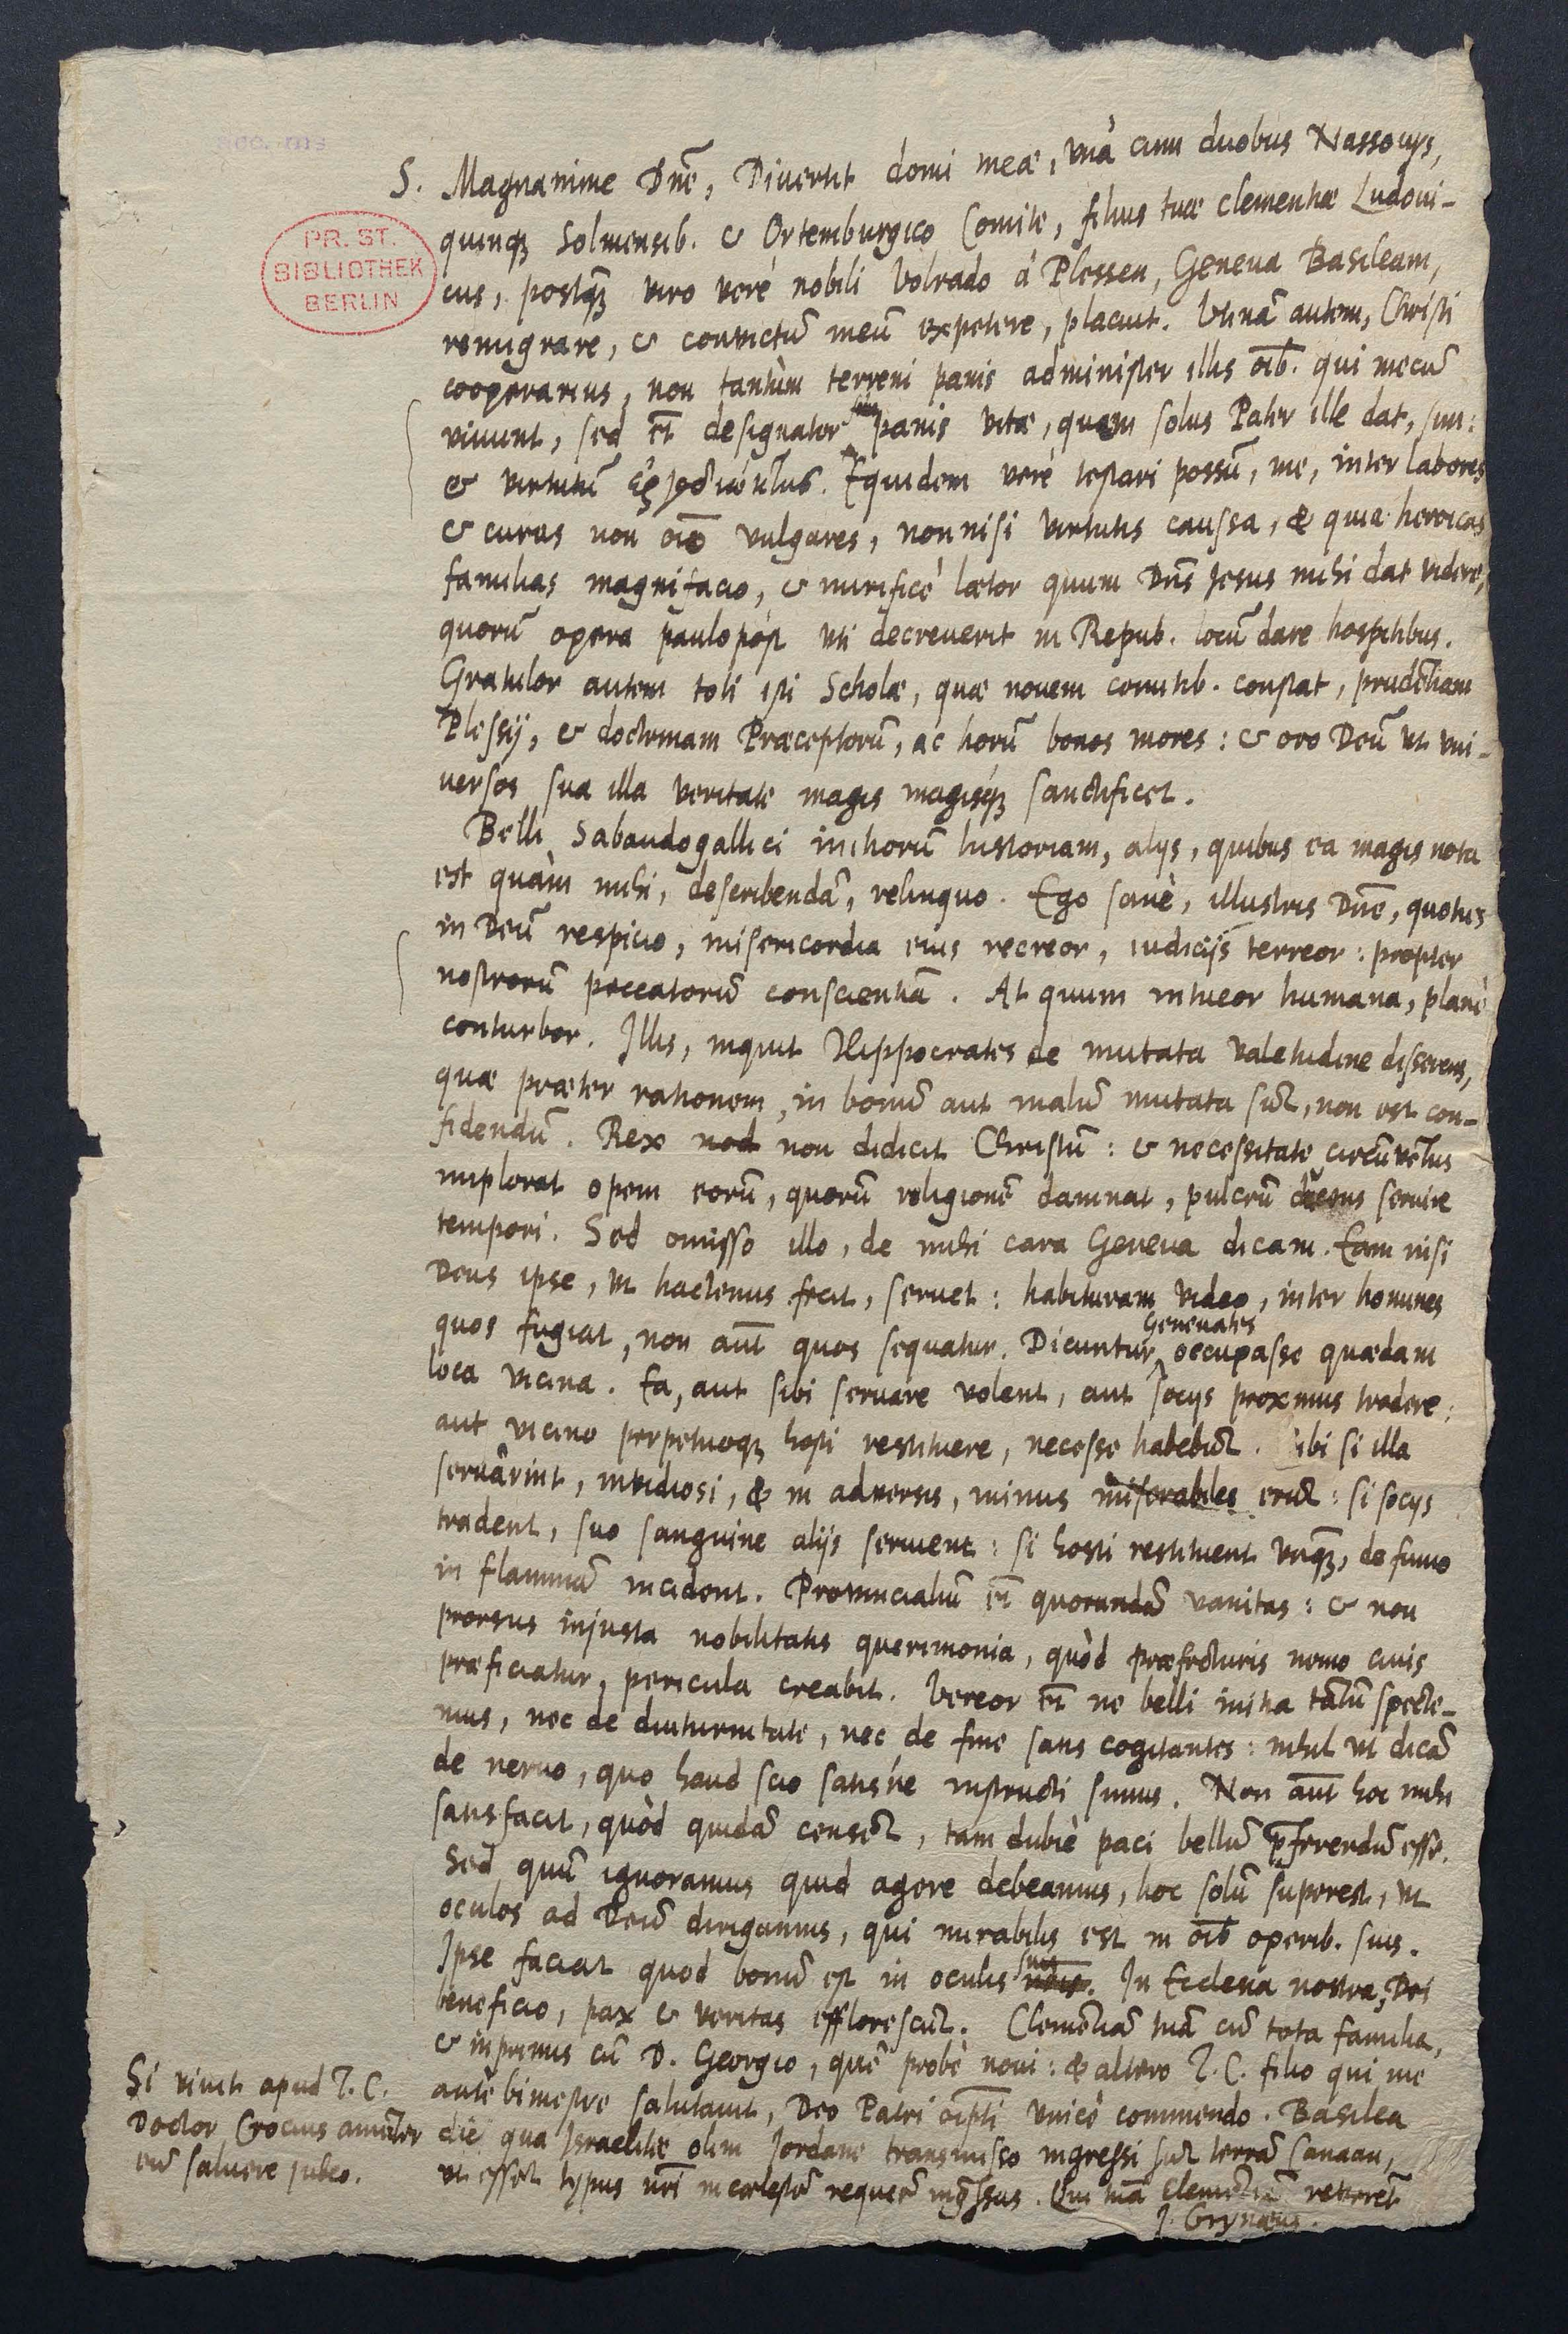 S. Magnanime Dñe, Divertit domi meæ, vnà cum duobus Nassovijs,
quinq; Solmensib. & Ortemburgico Comite, filius tuæ clementiæ Ludoui-
cus, postq̃; viro verè nobili Volrado à Plessen, Geneua Basileam,
remigrare, & convictũ meũ expetere, placuit. Vtinã autem, Christi
cooperarius, non tantùm terreni panis administer illis oĩb. qui mecũ
viuunt, sed et̃ designator panis vitæ, quem solus Pater ille dat, sim:
& virtutũ. Equidem verè testari possũ, me, inter labores
& curas non oĩo vulgares, non nisi virtutis caussa, & quia heroicas
familias magnifacio, & mirificè lætor quum Dñs Jesus mihi dat videre,
quorũ opera paulopòst vti decreuerit in Repub. locũ dare hospitibus.
Gratulor autem toti isti Scholæ, quæ novem comitib. constat, prudẽtiam
Plessij, & doctrinam Præceptorũ, ac horũ bonos mores: & oro Deũ vt vni-
versos sua illa veritate magis magisq; sanctificet.
Belli Sabaudogallici initiorũ historiam, alijs, quibus ea magis nota
est quàm mihi, describendã, relinquo. Ego sanè, illustris Dñe, quoties
in Deũ respicio, misericordia eius recreor, iudicijs terreor: propter
nostrorũ peccatorũ conscientiã. At quum intueor humana, planè
conturbor. Illis, inquit Hippocrates de mutata valetudine disserens,
quæ præter rationem, in bonũ aut malũ mutata sũt, non est con-
fidendũ. Rex nod non didicit Christũ: & necessitate circũvẽtus
implorat opem eorũ, quorũ religionẽ damnat, pulcrũ servire
tempori. Sed omisso illo, de mihi cara Geneua dicam. Eam nisi
Deus ipse, vt hactenus fecit, seruet: habituram video, inter homines
quos fugiat, non aũt quos sequatur. Dicuntur Geneuates occupasse quædam
loca vicina. Ea, aut sibi servare volent, aut socijs proximis tradere:
aut vicino perpetuoq; hosti restituere, necesse habebũt. Sibi si illa
servârint, invidiosi, & in adversis, minus miserabiles erũt: si socijs
tradent, suo sanguine alijs servient: si hosti restituent vnq̃;, de fumo
in flammã incident. Provincialiũ et̃ quorundã vanitas: & non
prorsus injusta nobilitatis querimonia, quòd præfecturis nemo civis
præficiatur, pericula creabit. Vereor et̃ ne belli initia tãtũ specte-
mus, nec de diuturnitate, nec de fine satis cogitantes: nihil vt dicã
de nervo, quo haud scio satisne instructi simus. Non aũt hoc mihi
satisfacit, quòd quidã censẽt, tam dubiè paci bellũ p̃ferendũ esse.
Sed quũ ignoramus quid agere debeamus, hoc solũ superest, vt
oculos ad Deũ dirigamus, qui mirabilis est in oĩb operib. suis.
Ipse faciat quod bonũ est in oculis suis. In Ecclesia nostra, Dei
beneficio, pax & veritas efflorescũt. Clemẽtiã tuã cũ tota familia,
& inprimis cũ D. Georgio, quẽ probè novi: & altero T. C. filio qui me
ante bimestre salutauit, Deo Patri oĩpt̃i vnicè commendo. Basilea
die qua Israelitæ olim Jordane transmisso ingressi sũt terrã Canaan,
vt esset typus nr̃i in cœlestẽ requiẽ ingressus. Qui tuã Clemẽtiã reveret̃
J. Grynæus.
Si vivit apud T. C.
Doctor Crocius amãter
eũ salvere jubeo.
PR. ST.
BIBLIOTHEK
BERLIN